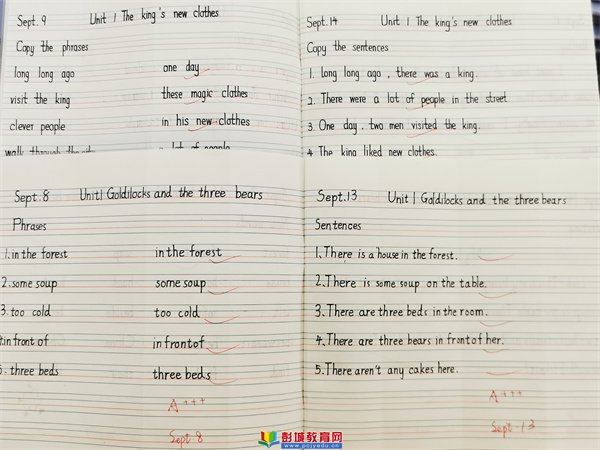 Sept. 9 Unit 1 The king's new clothes
Copy the phrases
long long ago one day
visit the king these magic clothes
clever people in his new clothes
walk through the city a lot of people
Sept. 14 Unit 1 The king's new clothes
Copy the sentences
1. Long long ago, there was a king.
2. There were a lot of people in the street
3. One day, two men visited the king.
4 The king liked new clothes.
Sept. 8 Unit1 Goldilocks and the three bears
Phrases
1. in the forest in the forest
2. some soup some soup
3. too cold too cold
in front of in front of
three beds three beds
A+++
Sept 8
Sept. 13 Unit 1 Goldilocks and the three bears
Sentences
1. There is a house in the forest.
2. There is some soup on the table.
3. There are three beds in the room.
4. There are three bears in front of her.
5. There aren't any cakes here.
A+++
Sept. 13
彭城教育网
www.pcjyedu.cn